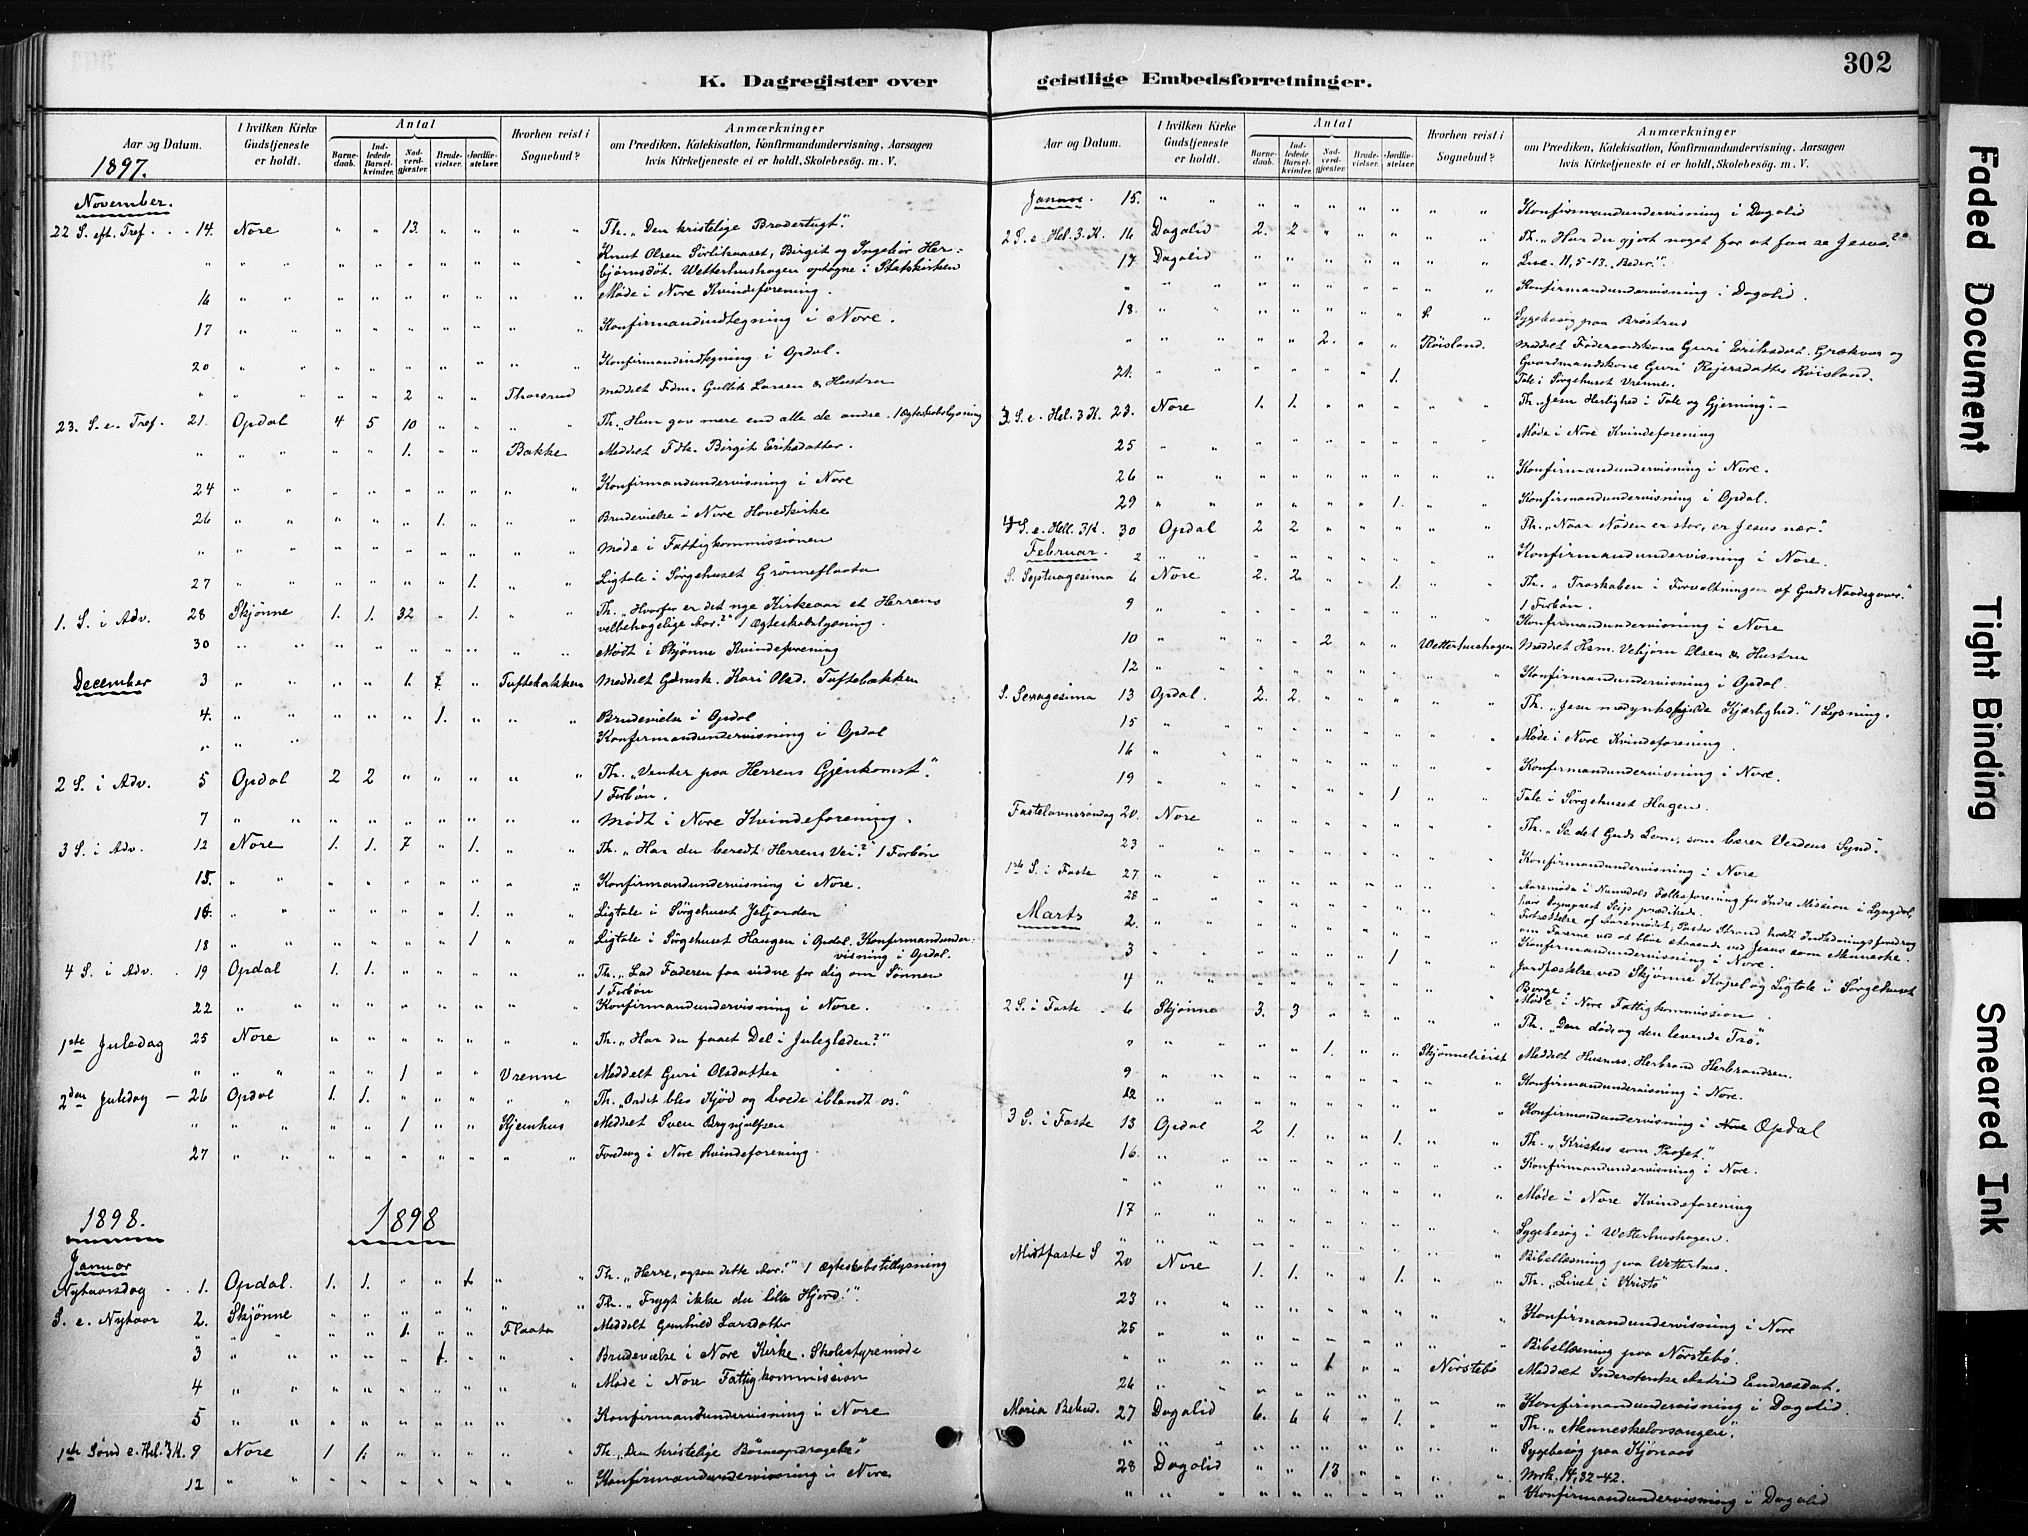 K. Dagregister over
Aar og Datum.
I hvilken Kirke Gudstjeneste er holdt.
Antal
Barnedaab.
Indledede Barselkvinder.
Nadverdgjæster.
Brudevielser.
Jordfæstelser.
Hvorhen reist i Sognebud?
Anmærkninger
om Prædiken, Katekisation, Konfirmandundervisning, Aarsagen
hvis Kirketjeneste ei er holdt, Skolebesøg. m. V.
1897.
November.
22 S. eft. Tref. 14. Nore " " 13. " " " " Th. „Den kristelige Brodertugt".
Knut Olsen Sørlikaaset, Birgit og Ingebør Her-
bjørnsdøt. Wetterhushagen optagne i Statskirken
16 Møde i Nore Kvindeforening.
17 Konfirmandindtegning i Nore.
20 Konfirmandindtegning i Opdal.
2 Thorsrud Meddelt Fdm. Gullik Larsen & Hustru
23. S. e. Tref. 21. Opdal 4 5 10 Th. „Hun gav mere end alle de andre. 1 Ægteskabslysning
1. Bakke Meddelt Fdk. Birgit Eriksdatter.
24 Konfirmandundervisning i Nore
26 1. Brudevielse i Nore Hovedkirke
Møde i Fattigkommissionen
27 1. Ligtale i Sørgehuset Grønneflaata
1. S. i Adv. 28 Skjønne 1. 1. 32 " 1. Th. „Hvorfor er det nye Kirkeaar et Herrens
velbehagelige Aar?" 1 Ægteskabslysning.
30 Mødt i Skjønne Kvindeforening
December 3 1. Tuftebakken Meddelt Gdmsk. Kari Olsd. Tuftebakken
4. 1. Brudevielse i Opdal
Konfirmandundervisning i Opdal
2 S. i Adv. 5 Opdal 2 2 Th. „Venter paa Herrens Gjenkomst".
1 Forbøn.
7 Mødt i Nore Kvindeforening.
3 S. i Adv. 12 Nore 1. 1. 7 " 1. Th. „Har du beredt Herrens Vei?" 1 Forbøn
15. Konfirmandundervisning i Nore.
16. 1. Ligtale i Sørgehuset Jeljorden
18 1 Ligtale i Sørgehuset Haugen i Opdal. Konfirmandunder-
visning i Opdal.
4 S. i Adv. 19 Opdal 1. 1. Th. „Lad Faderen faa vidne for dig om Sønnen
1 Forbøn
22 Konfirmandundervisning i Nore.
1ste Juledag 25 Nore Th. „Har du faaet Del i Juleglæden?"
1 Vrenne Meddelt Guri Olsdatter
2den Juledag 26 Opdal 1. 1. Th. „Ordet blev Kjød og boede iblandt os."
1 Kjemhus Meddelt Sven Brynjulfsen
27 Foredrag i Nore Kvindeforening.
1898. 1898
Januar
Nytaarsdag 1. Opdal. 1. 1. Th. „Herre, ogsaa dette Aar!" 1 Ægteskabstillysning
S. e. Nytaar 2. Skjønne Th. „Frygt ikke du lille Hjord!"
1. Flaata Meddelt Gunhild Larsdatter
3 1. Brudevielse i Nore Kirke. Skolestyremøde
4 Møde i Nore Fattigkommission
5 Konfirmandundervisning i Nore
1ste Sønd e. Hel. 3 K. 9 Nore 1 1. Th. „Den kristelige Børneopdragelse"
12 Konfirmandundervisning i Nore
geistlige Embedsforretninger.
302
Aar og Datum.
I hvilken Kirke Gudstjeneste er holdt.
Antal
Barnedaab.
Indledede Barselkvinder.
Nadverdgjæster.
Brudevielser.
Jordfæstelser.
Hvorhen reist i Sognebud?
Anmærkninger
om Prædiken, Katekisation, Konfirmandundervisning, Aarsagen
hvis Kirketjeneste ei er holdt, Skolebesøg. m. V.
Januar. 15. Konfirmandundervisning i Dagalid
2 S. e. Hel. 3. K. 16 Dagalid 2. 2 Th. „Har du gjort noget for at faa se Jesus?"
17 Dagalid Luc. 11, 5-13. „Beder!".
Konfirmandundervisning i Dagalid.
18. Sygebesøg paa Brøstrud
2. Røisland. Meddelt Føderaadskone Guri Eriksdat. Grækvas og
Gaardmandskone Guri Reiersdatter Røisland.
21. 1. Tale i Sørgehuset Vrenne.
3 S. e. Hel. 3 K. 23. Nore 1. 1. Th. „Jesu Herlighed i Tale og Gjerning".
25 Møde i Nore Kvindeforening
26 Konfirmandundervisning i Nore.
29 1. Konfirmandundervisning i Opdal.
4 S. e. Hell. 3 K. 30 Opdal 2 2 Th. „Naar Nøden er stor, er Jesus nær".
Februar. 2 Konfirmandundervisning i Nore.
S. Septuagesima 6 Nore 2. 2 1. Th. „Troskaben i Forvaltningen af Guds Naadegaver."
1 Forbøn.
9 Konfirmandundervisning i Nore
10 2 Wetterhushagen Meddelt Hsm. Vebjørn Olsen & Hustru
12 Konfirmandundervisning i Opdal.
S. Sexagesima 13 Opdal. 2. 2. Th. „Jesu medynksfulde Kjærlighed." 1 Lysning.
15 Møde i Nore Kvindeforening.
16 Konfirmandundervisning i Nore.
19 1 Tale i Sørgehuset Hagen.
Fastelavnssøndag 20. Nore Th. „Se det Guds Lam, som bærer Verdens Synd".
23 Konfirmandundervisning i Nore
1ste S. i Faste 27 Aarsmøde i Numedals Fællesforening for Indre Mission i Lyngdal,
hvor Sogneprest Slip prædikede.
28 Fortsættelse af Aarsmødet. Pastor Strand holdt Indledningsforedrag
om Farerne ved at blive staaende ved Jesus som Menneske.
Marts 2. Konfirmandundervisning i Nore.
3 1 Jordfæstelse ved Skjønne Kapel og Ligtale i Sørgehuset
Borge
4 Møde i Nore Fattigkommission
2 S. i Faste 6 Skjønne 3. 3 Th. „Den døde og den levende Tro".
1. Skjønnelieiet Meddelt Husmos. Herbrand Herbrandsen.
9 Konfirmandundervisning i Nore.
12 Konfirmandundervisning i Nore Opdal
3 S. i Faste 13 Opdal 2 1. 1. Th. „Kristus som Profet."
16. Konfirmandundervisning i Nore.
Møde i Nore Kvindeforening
17 Sygebesøg i Wetterhushagen.
Bibellæsning paa Wetterhus.
Midtfaste S 20 Nore 1. 1. 1. Th. „Livet i Kristo"
23 Konfirmandundervisning i Nore
25 Bibellæsning paa Nørstebø.
1 Nørstebø Meddelt Inderstenke Astrid Endresdat.
26 Konfirmandundervisning i Dagalid.
Maria Bebud. 27 Dagalid 6. 6 6 1. Th. „Menneskelovsangen".
Sygebesøg paa Kjønaas
28 Dagalid 13 Mrk. 14, 32-42.
Konfirmandundervisning i Dagalid
Faded Document
Tight Binding
Smeared Ink